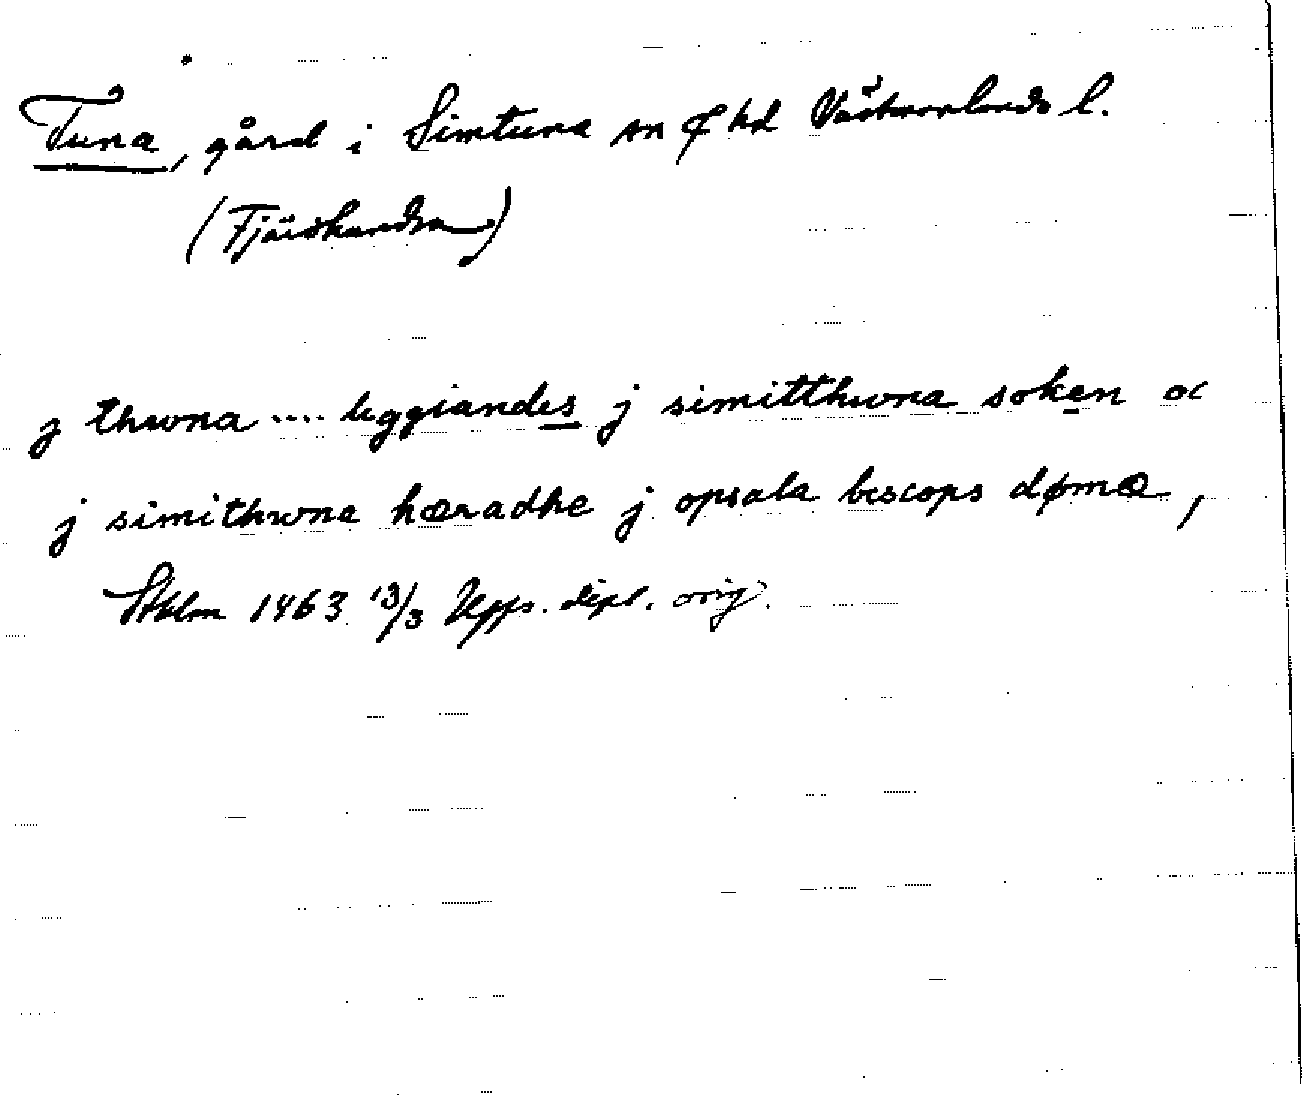 Tuna, gård i Simtuna sn o hd Västmanlands l.
(Fjärdhundra)
j thwna .... liggiandes j simitthwna soken oc
j simithwna hæradhe j opsala biscops dømæ,
Sthlm 1463 13/3 Upps. dipl. orig.